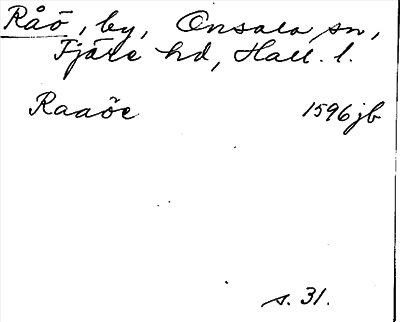 Råö, by, Onsala sn,
Fjäre hd, Hall. l.
Raaöe 1596 jb
s. 31.